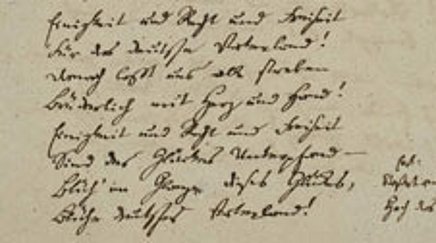 Einigkeit und Recht und Freiheit
Für das deutsche Vaterland!
Danach laßt uns alle streben
Brüderlich mit Herz und Hand!
Einigkeit und Recht und Freiheit
Sind des Glückes Unterpfand –
Blüh' im Glanze dieses Glückes,
Blühe deutsches Vaterland!